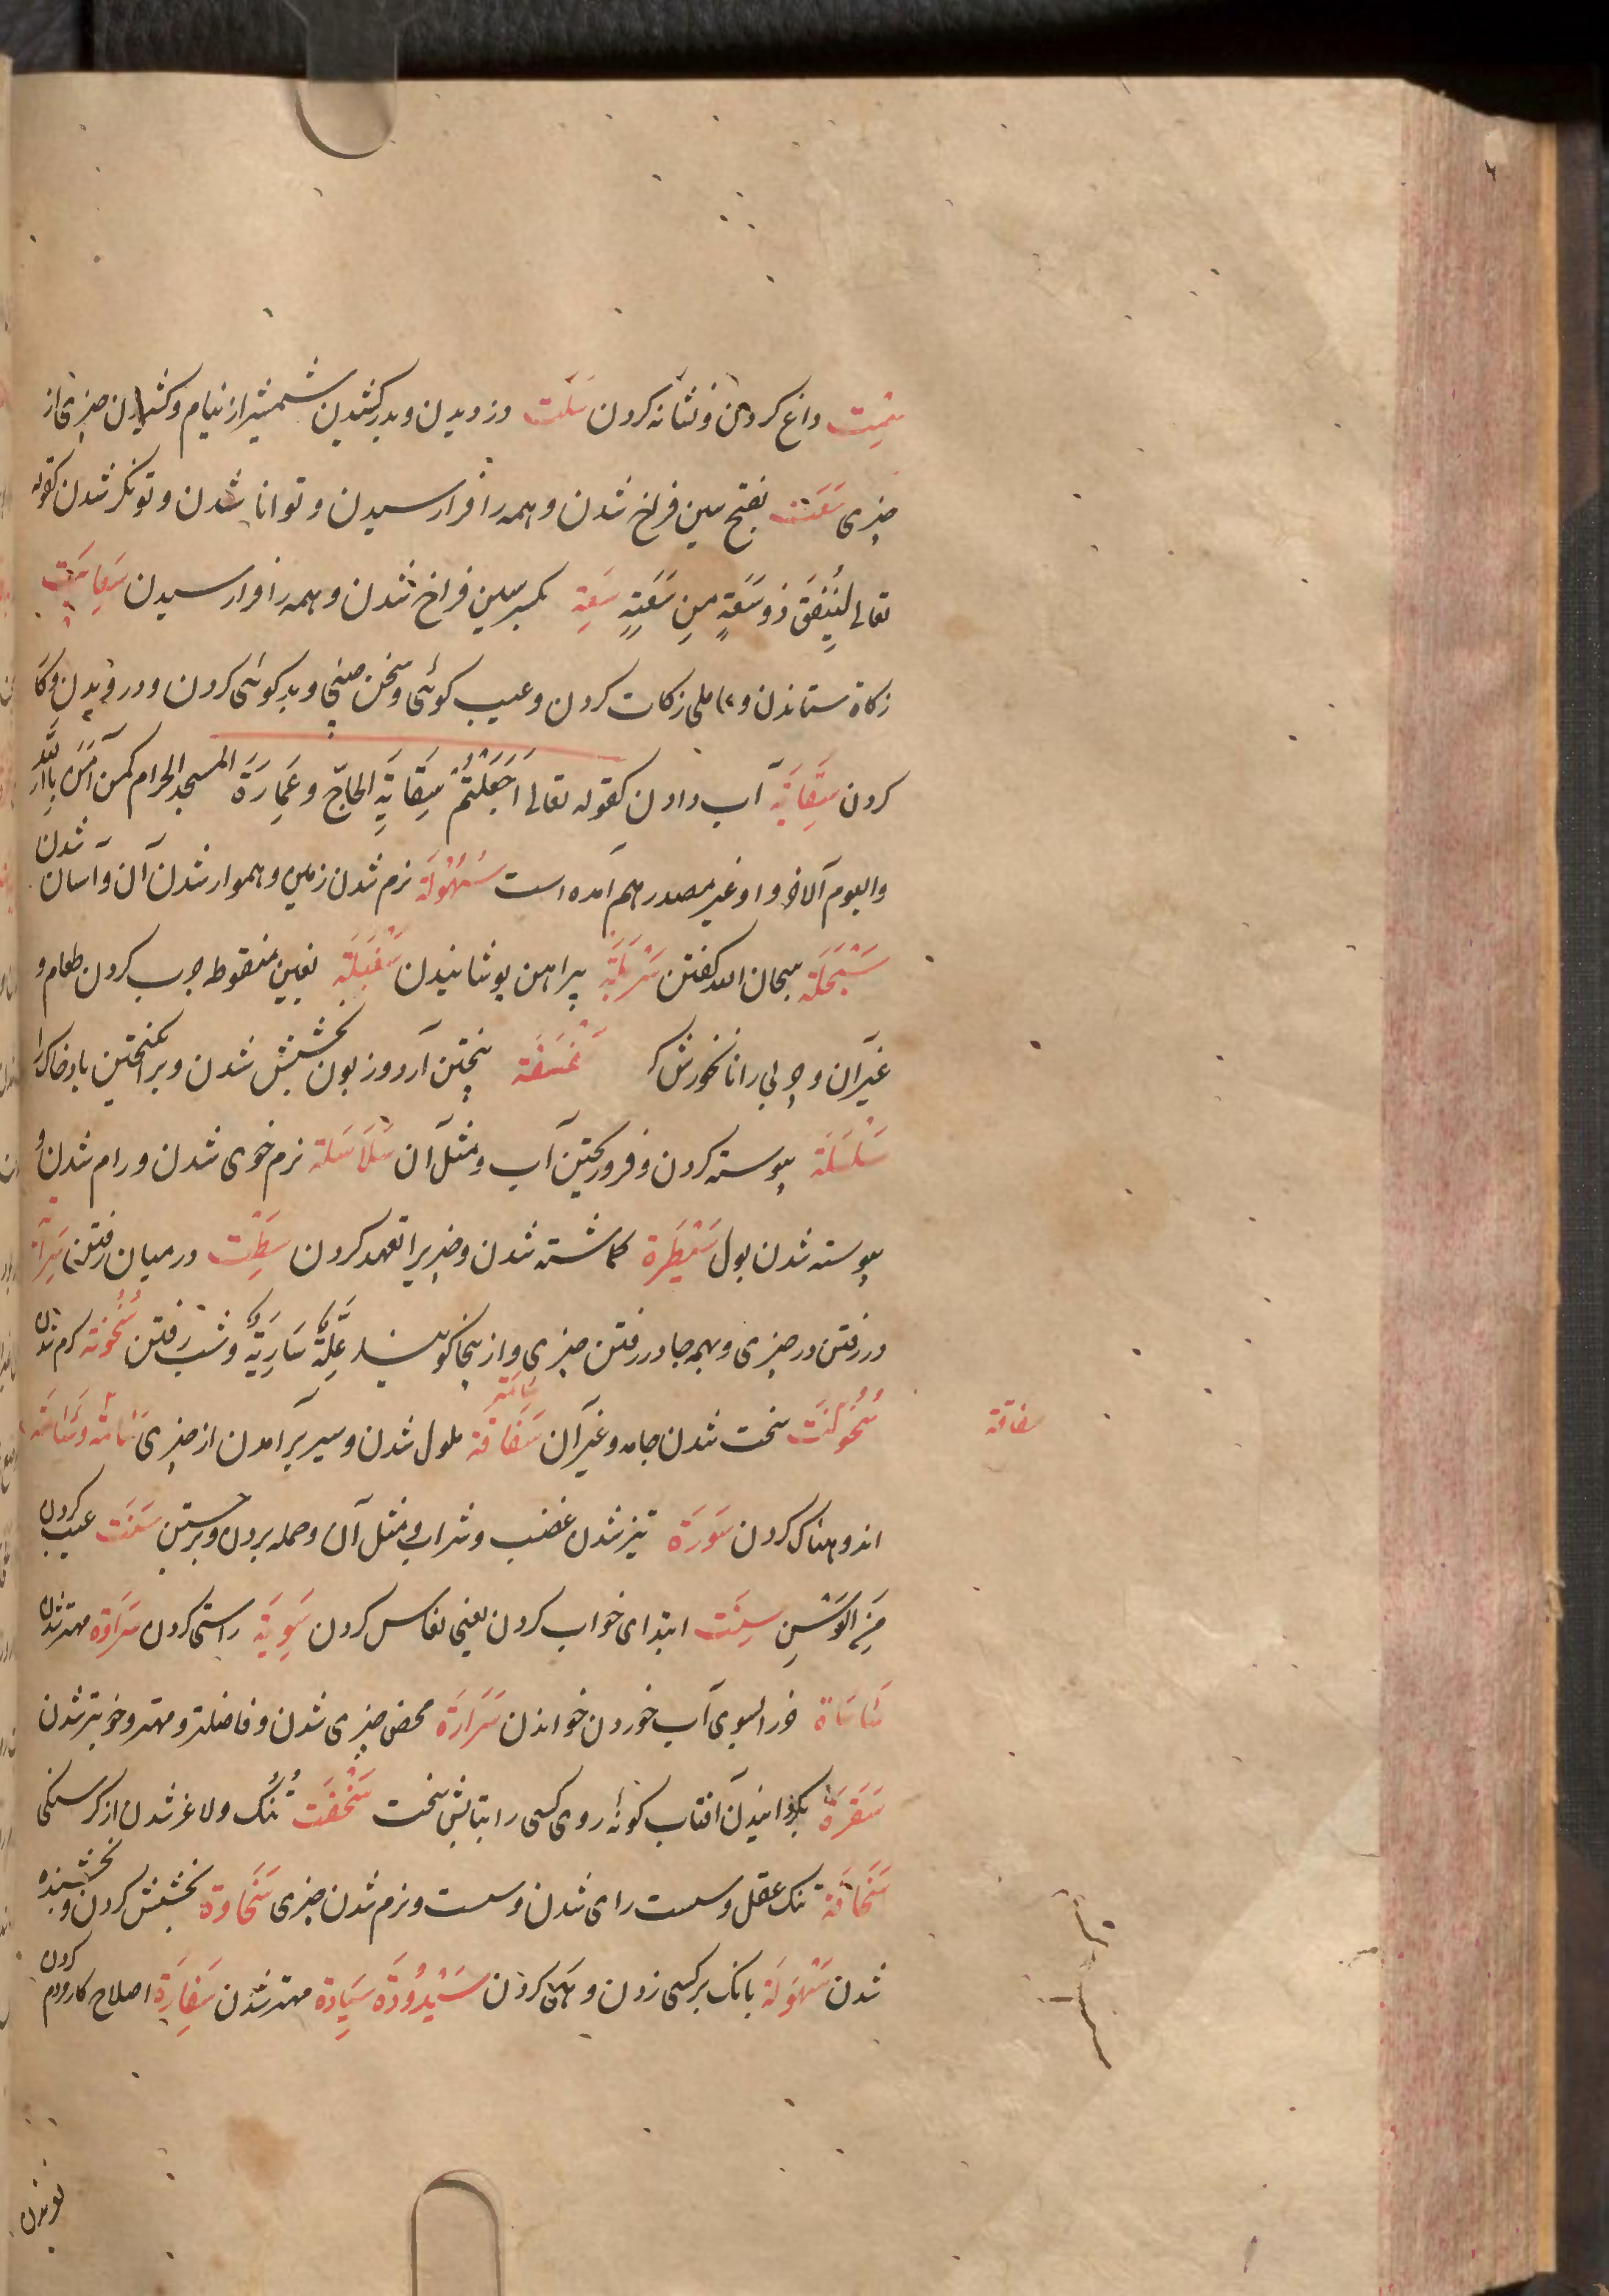 سِمت داغ کردن و نشانه کردن سَلت دزدیدن و بدر کشیدن شمشیر از نیام و کشیدن چیزی از
چیزی سَعَت بفتح سین فراخ شدن و همه را فرا رسیدن و توانا شدن و تونکر شدن کقوله
تعالی لِیُنفِقَ ذُو سَعَةٍ مِن سَعَتِهِ سِعَة بکسر سین فراخ شدن و همه را فرا رسیدن سِعایت
زکاة ستاندن و عاملی زکات کردن و عیب کوئی و سخن چینی و بد کوئی کردن و در دویدن و
کردن سِقایَة آب دادن کقوله تعالی اَجَعَلْتُمْ سِقَایَةَ الحاجّ وعِمارَةَ المسجد الحرام کمن آمَنَ باللّه
والیوم الآخر و او غیر مصدر هم آمده است سُهُولَة نرم شدن زمین و هموار شدن آن و آسان شدن
سَبْحَلَة سبحان الله کفتن سَرْبَلَة پیراهن پوشانیدن سَغْبَلَة بغین منقوط چرب کردن طعام و
غیر آن و چربی را نانخورش سَفْسَفَة بیختن آرد و زبون بخشش شدن و برانکیختن باد خاک را
سَلْسَلَة پیوسته کردن و فرو ریختن آب و مثل آن سَلَاسَلة نرم خوی شدن و رام شدن و
پیوسته شدن بول سَیْطَرَة کماشته شدن و چیزیرا تعهد کردن سِطَت در میان رفتن سِرایَة
در رفتن در چیزی و بهمه جا در رفتن چیزی و از ینجا کویند عِلَّةٌ سَارِیَةٌ و شب رفتن سُخُونَة کرم شدن
سُخُونَت سخت شدن جامه و غیر آن سَفَاقَة سَامَة ملول شدن و سیر برآمدن از چیزی
سفاقة
اندوهناک کردن سَورَة تیز شدن غضب و شراب و مثل آن و حمله بردن و برجستن عیب کردن
سِنَت ابتدای خواب کردن یعنی نعاس کردن سَوِیَة راستی کردن سَراوَة مهتر شدن
سَاسَاة خر را بسوی آب خوردن خواندن سَرَارَة محض چیزی شدن و فاضلتر و مهتر و خوبتر شدن
سَقرَة بکردانیدن آفتاب کونهٔ روی کسی را بتابش سخت سَخْفَت تُنُک و لاغر شدن از کرسنکی
سَخَافَة تنک عقل و سست رای شدن و سست و نرم شدن چیزی سَخَاوة بخشش کردن و بخشنده
شدن بانک بر کسی زدن و کردن سَیْدُودَة سِیَادة مهتر شدن سِفَارَة اصلاح کار مردم کردن